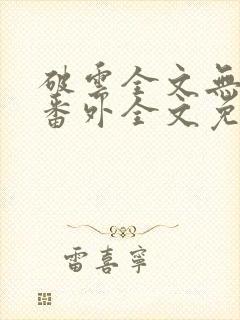 破雲全文無
番外全文免
雷喜寧